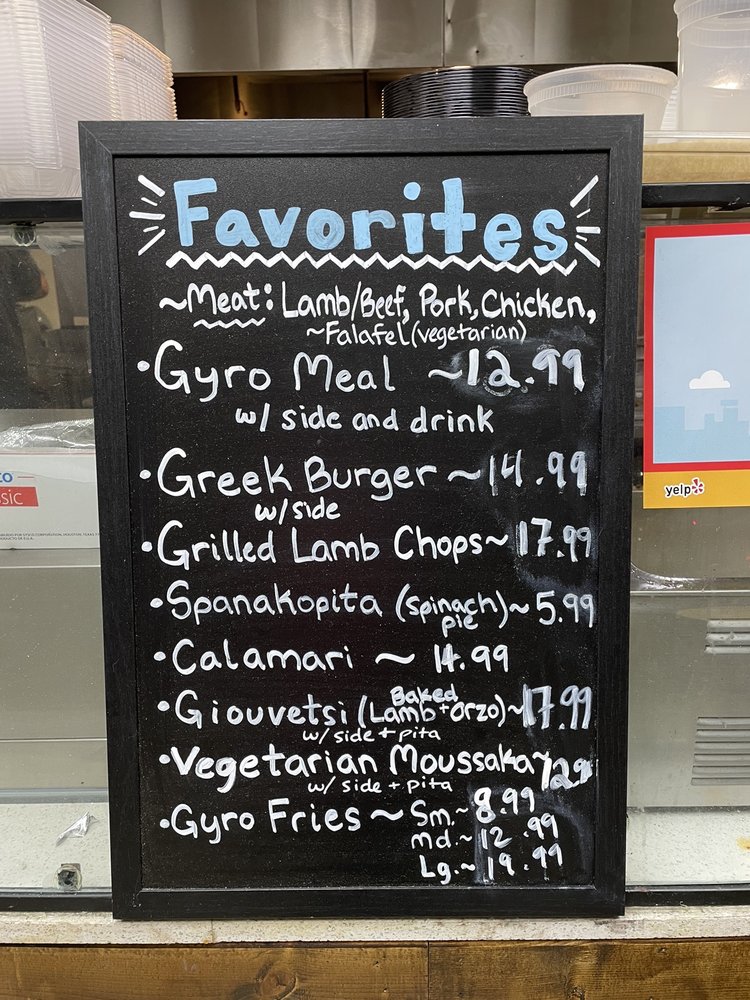 Favorites
~Meat: Lamb/Beef, Pork, Chicken,
~Falafel (vegetarian)
•Gyro Meal ~12.99
w/ side and drink
•Greek Burger ~14.99
w/side
•Grilled Lamb Chops~ 17.99
•Spanakopita (spinach pie)~ 5.99
•Calamari ~ 14.99
•Giouvetsi (Baked Lamb + orzo)~17.99
w/ side + pita
•Vegetarian Moussaka~
w/ side + pita
•Gyro Fries ~ Sm.~ 8.99
md.~ 12.99
Lg.~ 19.99
yelp